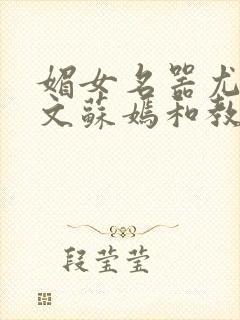 媚女名器尤
文蘇媽和教
段莹莹